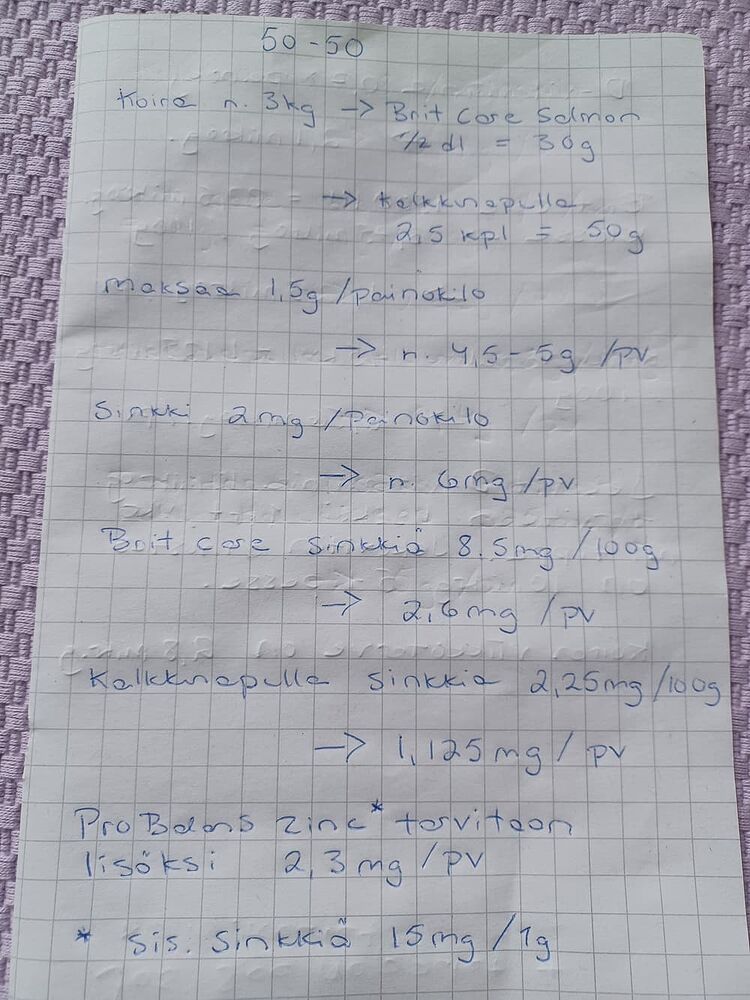 50-50
Koira n. 3kg → Brit Care Salmon
1/2 dl = 30g
→ kalkkunapulla
2,5 kpl = 50g
maksaa 1,5g /painokilo
→ n. 4,5-5g /pv
Sinkki 2mg /painokilo
→ n. 6mg /pv
Brit care sinkkiä 8.5mg /100g
→ 2,6mg /pv
Kalkkunapulla sinkkiä 2,25mg /100g
→ 1,125mg / pv
ProBalans zinc* tarvitaan
lisäksi 2,3mg /pv
* sis. sinkkiä 15mg /1g